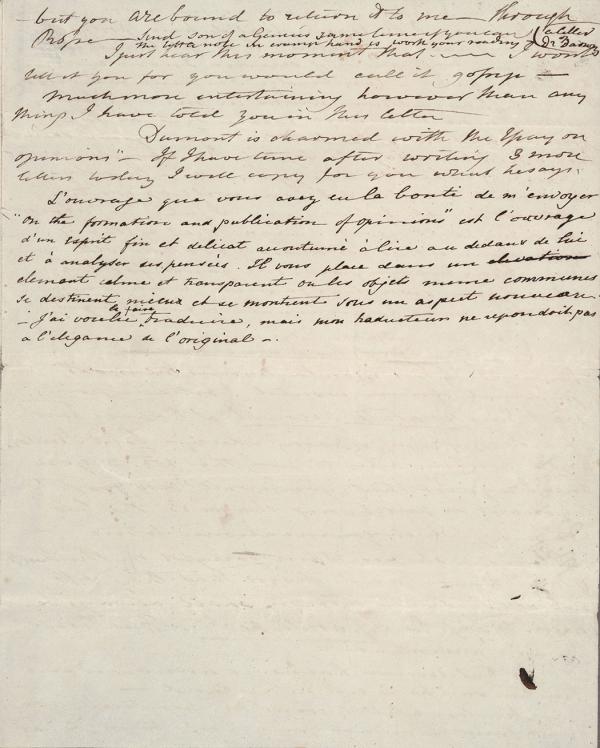 - but you are bound to return it to me - through
Rose - send son of a Genius same time if you can (a letter
The letter a note in cramp hand is worth your reading of Dr
I just hear this moment that — I won't
tell it you for you would call it gossip -
Much more entertaining however than any
thing I have told you in this letter
Dumont is charmed with the Essay on
opinions" - If I have time after writing 3 more
letters today I will copy for you what he says.
L'ouvrage que vous avez eu la bonté de m'envoyer
"On the formation and publication of opinions" est l'ouvrage
d'un esprit fin et delicat accoutumé à lire au dedans de lui
et à analyser ses pensées. Il vous place dans un elevation
element calme et transparent ou les objets meme communes
se destinent mieux et se montrent sous un aspect nouveau.
les faire
- J'ai voulu traduire, mais mon traducteur ne repondoit pas
a l'elegance de l'original -.